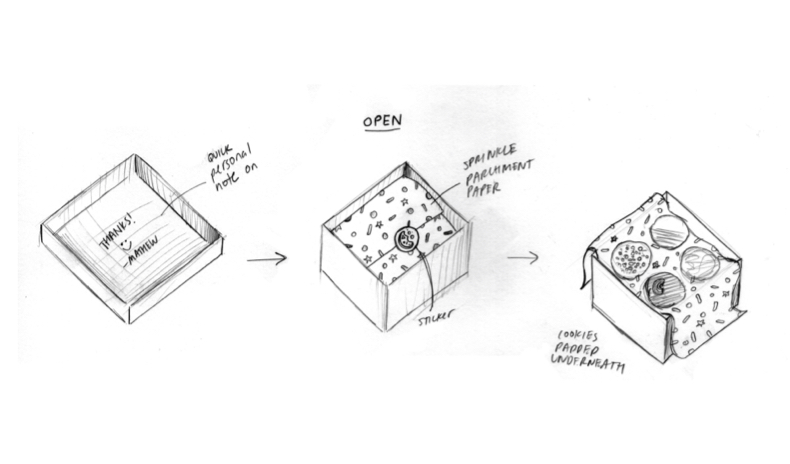 QUICK
personal
note on
THANKS!
MATHEW
OPEN
SPRINKLE
PARCHMENT
PAPER
STICKER
COOKIES
PADDED
UNDERNEATH